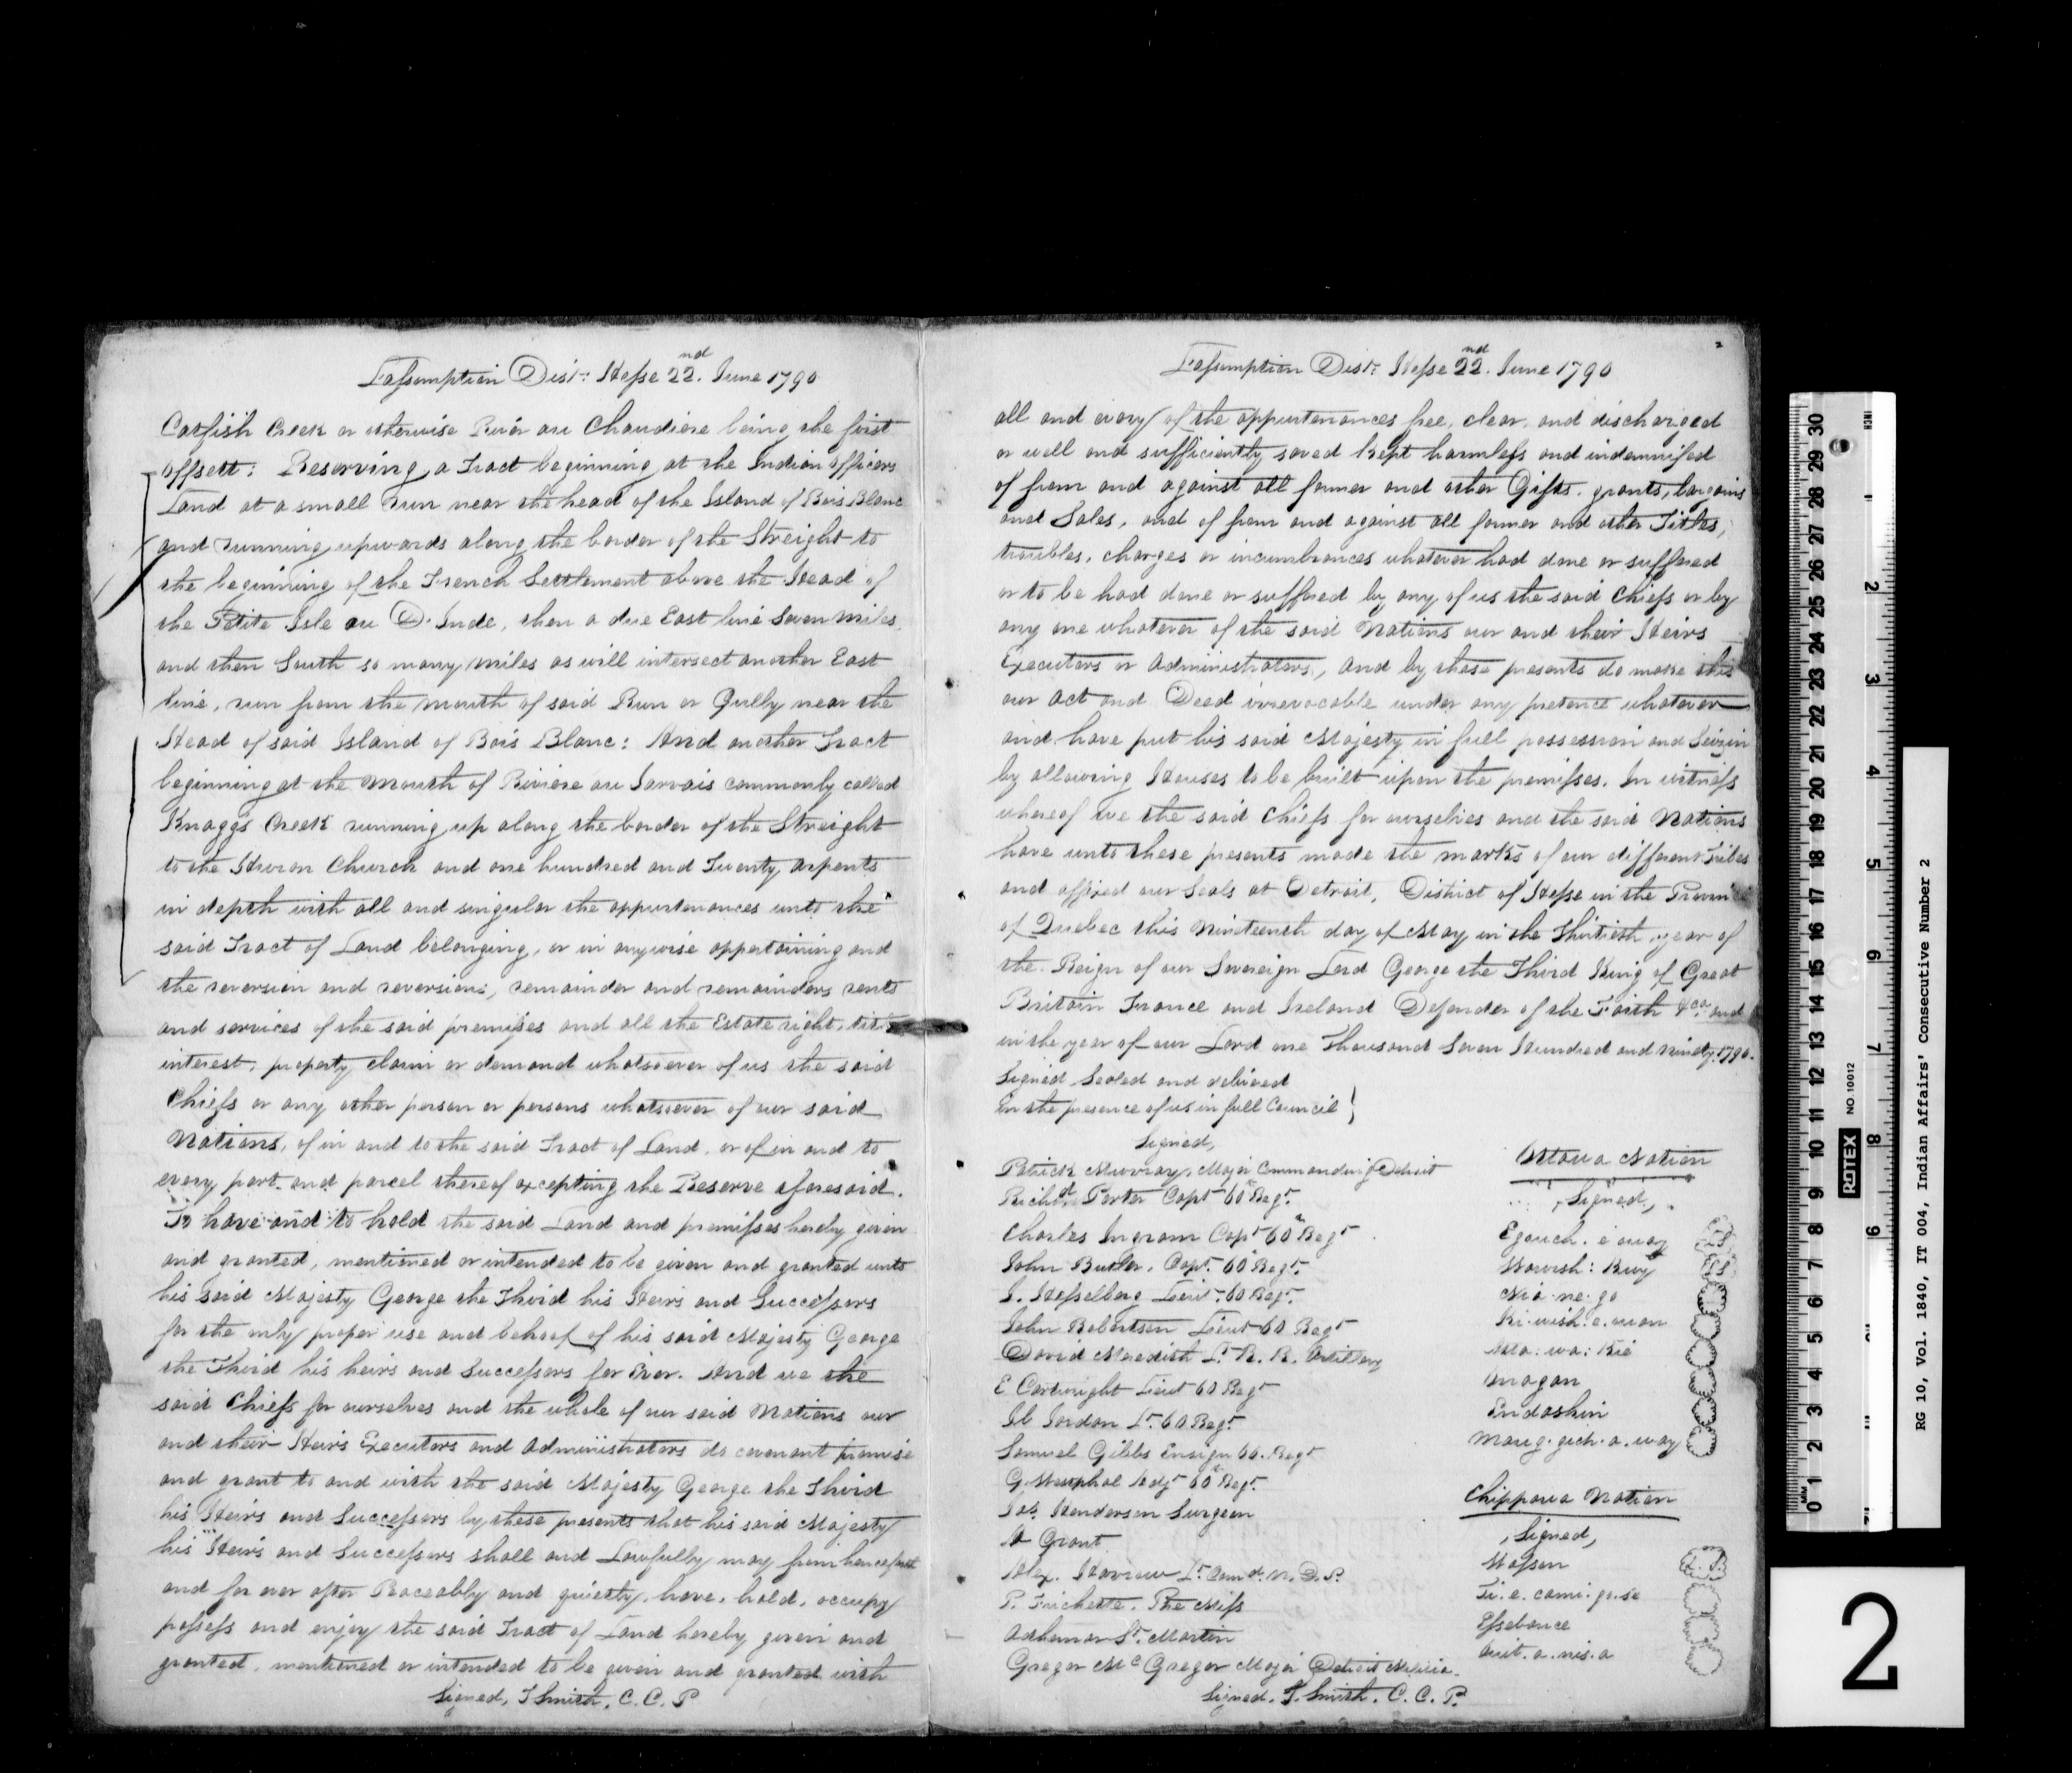 Lassumption Dist: Hesse 22nd. June 1790
Catfish Creek or otherwise Rivèr au Chaudiere being the first
offsett: Reserving a Tract beginning at the Indian officers
Land at a small run near the head of the Island of Bois Blanc
and running upwards along the border of the Streight to
the beginning of the French Settlement above the Head of
the Petite Isle au D. Inde, then a due East line Seven miles
and then South so many miles as will intersect another East
line, run from the mouth of said Run or Gully near the
Head of said Island of Bois Blanc: And another Tract
beginning at the Mouth of Riviere au Jarvais commonly called
Knaggs Creek running up along the border of the Streight
to the Huron Church and one hundred and Twenty Arpents
in depth with all and singular the appurtenances unto the
said Tract of Land belonging, or in anywise appertaining and
the reversion and reversions, remainder and remainders rents
and services of the said premisses and all the Estate right, title
interest, property claim or demand whatsoever of us the said
Chiefs or any other person or persons whatsoever of our said
Nations, of in and to the said Tract of Land, or of in and to
every part and parcel thereof excepting the Reserve aforesaid.
To have and to hold the said Land and premisses hereby given
and granted, mentioned or intended to be given and granted unto
his said Majesty George the Third his Heirs and Successors
for the only proper use and behoof of his said Majesty George
the Third his heirs and Successors for Ever. And we the
said Chiefs for ourselves and the whole of our said Nations our
and their Heirs Executors and Administrators do covenant promise
and grant to and with the said Majesty George the Third
his Heirs and Successors by these presents that his said Majesty
his Heirs and Successors shall and Lawfully may from henceforth
and for ever after Peaceably and quietly, have, hold, occupy
possess and enjoy the said Tract of Land hereby given and
granted, mentioned or intended to be given and granted with
Signed, T Smith, C. C. P
2
Lassumption Dist: Hesse 22nd. June 1790
all and every of the appurtenances free, clear, and discharged
or well and sufficiently saved kept harmless and indemnified
of from and against all former and other Gifts, grants, bargains
and Sales, and of from and against all former and other Titles,
troubles, charges or incumbrances whatever had done or suffered
or to be had done or suffered by any of us the said Chiefs or by
any one whatever of the said Nations our and their Heirs
Executors or Administrators, and by these presents do make this
our Act and Deed irrevocable under any pretence whatever
and have put his said Majesty in full possession and Seizin
by allowing Houses to be built upon the premisses. In witness
whereof we the said Chiefs for ourselves and the said Nations
have unto these presents made the marks of our different Tribes
and affixed our Seals at Detroit, District of Hesse in the Province
of Quebec this Nineteenth day of May in the Thirtieth year of
the Reign of our Sovereign Lord George the Third King of Great
Britain France and Ireland Defender of the Faith &ca. and
in the year of our Lord one Thousand Seven Hundred and Ninety. 1790.
Signed Sealed and delivered
in the presence of us in full Council
Signed,
Patrick Murray, Major Commanding Detroit
Richd. Porter Capt 60th Regt.
Charles Ingram Capt 60th Regt
John Butler, Capt. 60th Regt.
S. Hesselberg Lieut. 60 Regt.
John Robertson Lieut 60 Regt
David Meredith Lt. R. R. Artillery
E Cartwright Lieut 60 Regt
Jordan Lt. 60 Regt.
Samuel Gibbs Ensign 60. Regt
G. Westphal Adjt 60th Regt.
Henderson Surgeon
A Grant
Alex. Harrow Lt. Comd. N. D. P.
P. Frichette. Pre Miss
Adhemar St. Martin
Gregor McGregor Major Detroit Militia.
Signed. T. Smith. C. C. P.
Ottawa Nation
Signed,
Egouch. e ouay
Wawish: Kuy
Nia. ne. go
Ki. wish. e. wan
Atta: wa: Kie
Onagan
Endashin
Maug. gich. a. way
Chippawa Nation
Signed,
Wasson
Ti. e. cami. go. se
Essebance
Ouit. a. nis. a
RG 10, Vol. 1840, IT 004, Indian Affairs' Consecutive Number 2
ROTEX NO. 10012
INCH
MM
0 1 2 3 4 5 6 7 8 9 10 11 12 13 14 15 16 17 18 19 20 21 22 23 24 25 26 27 28 29 30
1 2 3 4 5 6 7 8 9
2